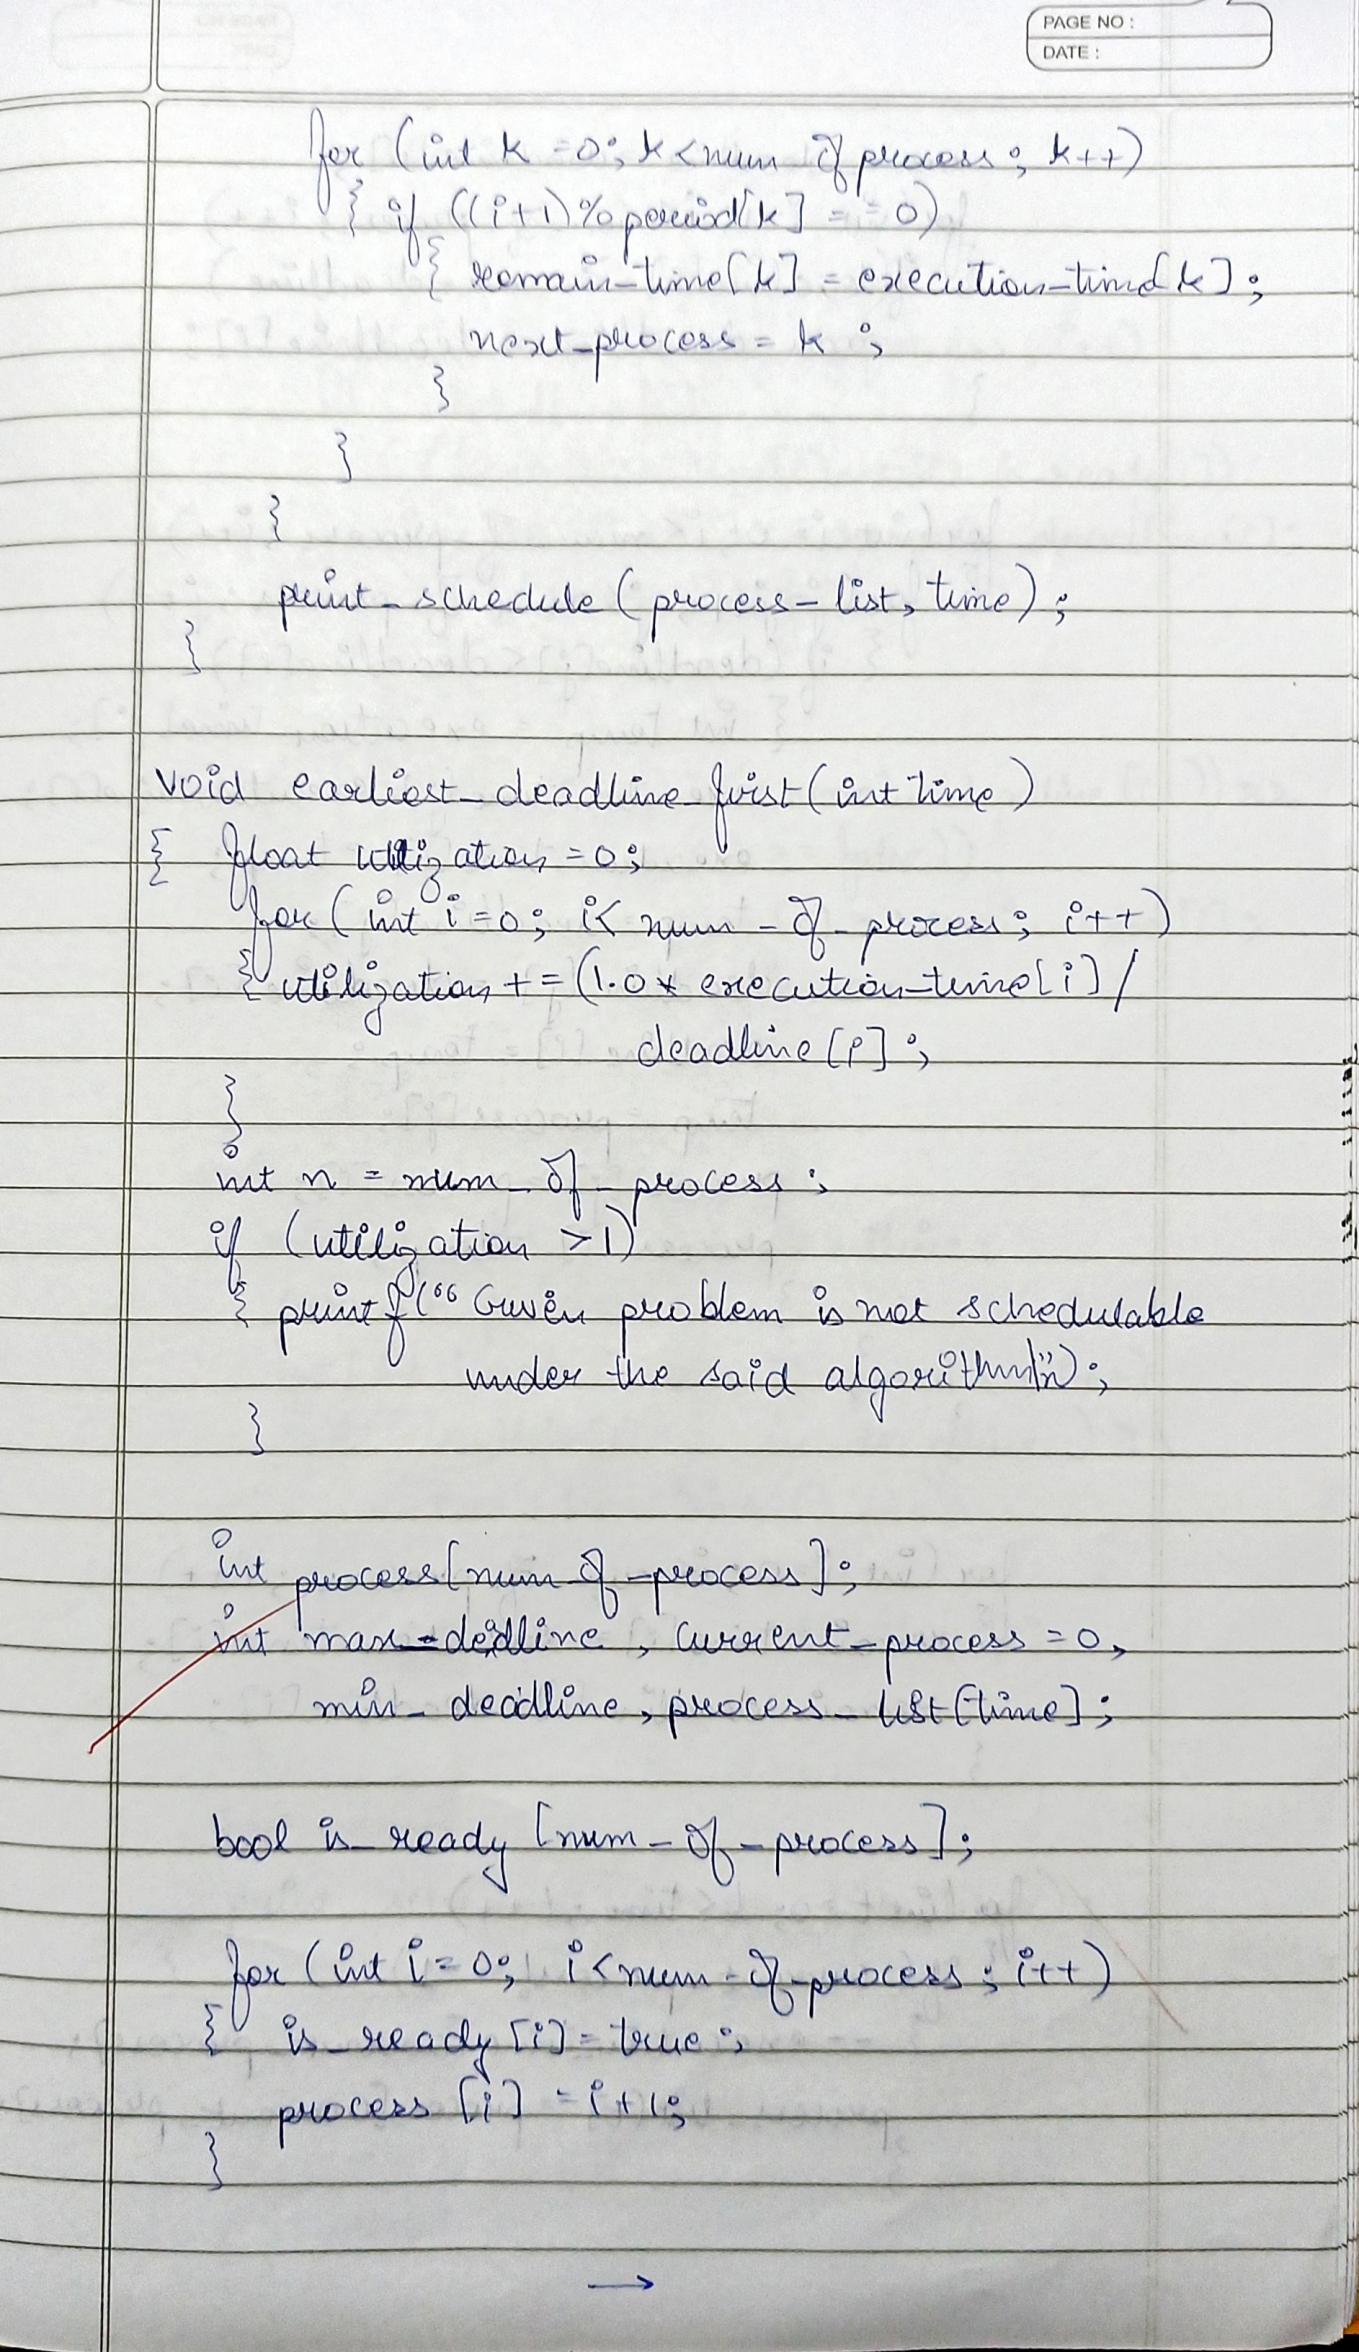 PAGE NO :
DATE :
for (int k = 0; k < num_of process ; k++)
{ if ((i+1) % period[k] == 0)
{ remain_time[k] = execution_time[k] ;
next_process = k ;
}
}
}
print_schedule (process_list, time) ;
}
void earliest_deadline_first (int time)
{ float utilization = 0 ;
for ( int i = 0 ; i < num_of_process ; i++ )
{ utilization += (1.0 * execution_time[i] /
deadline [i] ;
}
int n = num_of_process ;
if (utilization > 1)
{ printf (" Given problem is not schedulable
under the said algorithm\n") ;
}
int process[num_of_process] ;
int max_deadline , current_process = 0 ,
min_deadline , process_list [time] ;
bool is_ready [num_of_process] ;
for (int i = 0 ; i < num_of_process ; i++ )
{ is_ready [i] = true ;
process [i] = i+1 ;
}
→